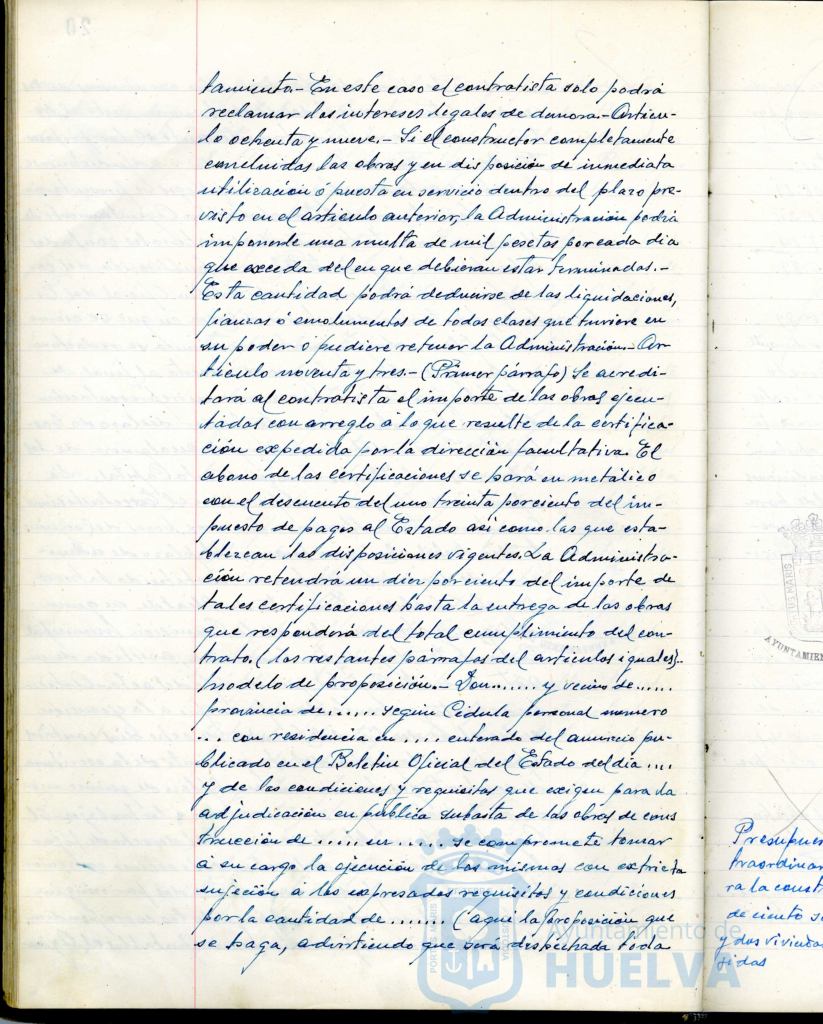 tamiento.- En este caso el contratista solo podrá
reclamar los intereses legales de demora.- Articu-
lo ochenta y nueve.- Si el constructor completamente
concluidas las obras y en disposición de inmediata
utilización ó puesta en servicio dentro del plazo pre-
visto en el articulo anterior, la Administración podrá
imponerle una multa de mil pesetas por cada dia
que exceda del en que debieran estar terminadas.-
Esta cantidad podrá deducirse de las liquidaciones,
fianzas ó emolumentos de todas clases que tuviere en
su poder ó pudiere retener la Administración.- Ar-
ticulo noventa y tres.- (Primer párrafo) Se acredi-
tará al contratista el importe de las obras ejecu-
tadas con arreglo á lo que resulte de la certifica-
ción expedida por la dirección facultativa. El
abono de las certificaciones se hará en metálico
con el descuento del uno treinta por ciento del im-
puesto de pagos al Estado asi como las que esta-
blezcan las disposiciones vigentes. La Administra-
ción retendrá un diez por ciento del importe de
tales certificaciones hasta la entrega de las obras
que responderá del total cumplimiento del con-
trato. (los restantes párrafos del articulos iguales).-
Modelo de proposición.- Don....... y vecino de......
provincia de...... según Cédula personal numero
... con residencia en .... enterado del anuncio pu-
blicado en el Boletin Oficial del Estado del dia ....
y de las condiciones y requisitos que exigen para la
adjudicación en pública subasta de las obras de cons
trucción de ..... en ...... se compromete tomar
á su cargo la ejecución de las mismas con extricta
sujeción á los expresados requisitos y condiciones
por la cantidad de ........ (aqui la proposición que
se haga, advirtiendo que será desechada toda
Presupues
traordinar
ra la const
de ciento s
y dos vivienda
gidas
AYUNTAMIEN
Ayuntamiento de
HUELVA